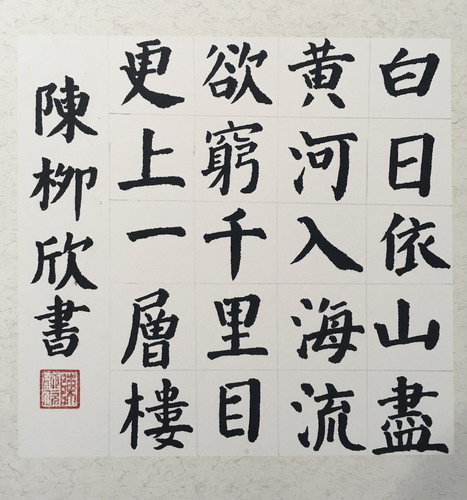 白日依山盡
黃河入海流
欲窮千里目
更上一層樓
陳柳欣書